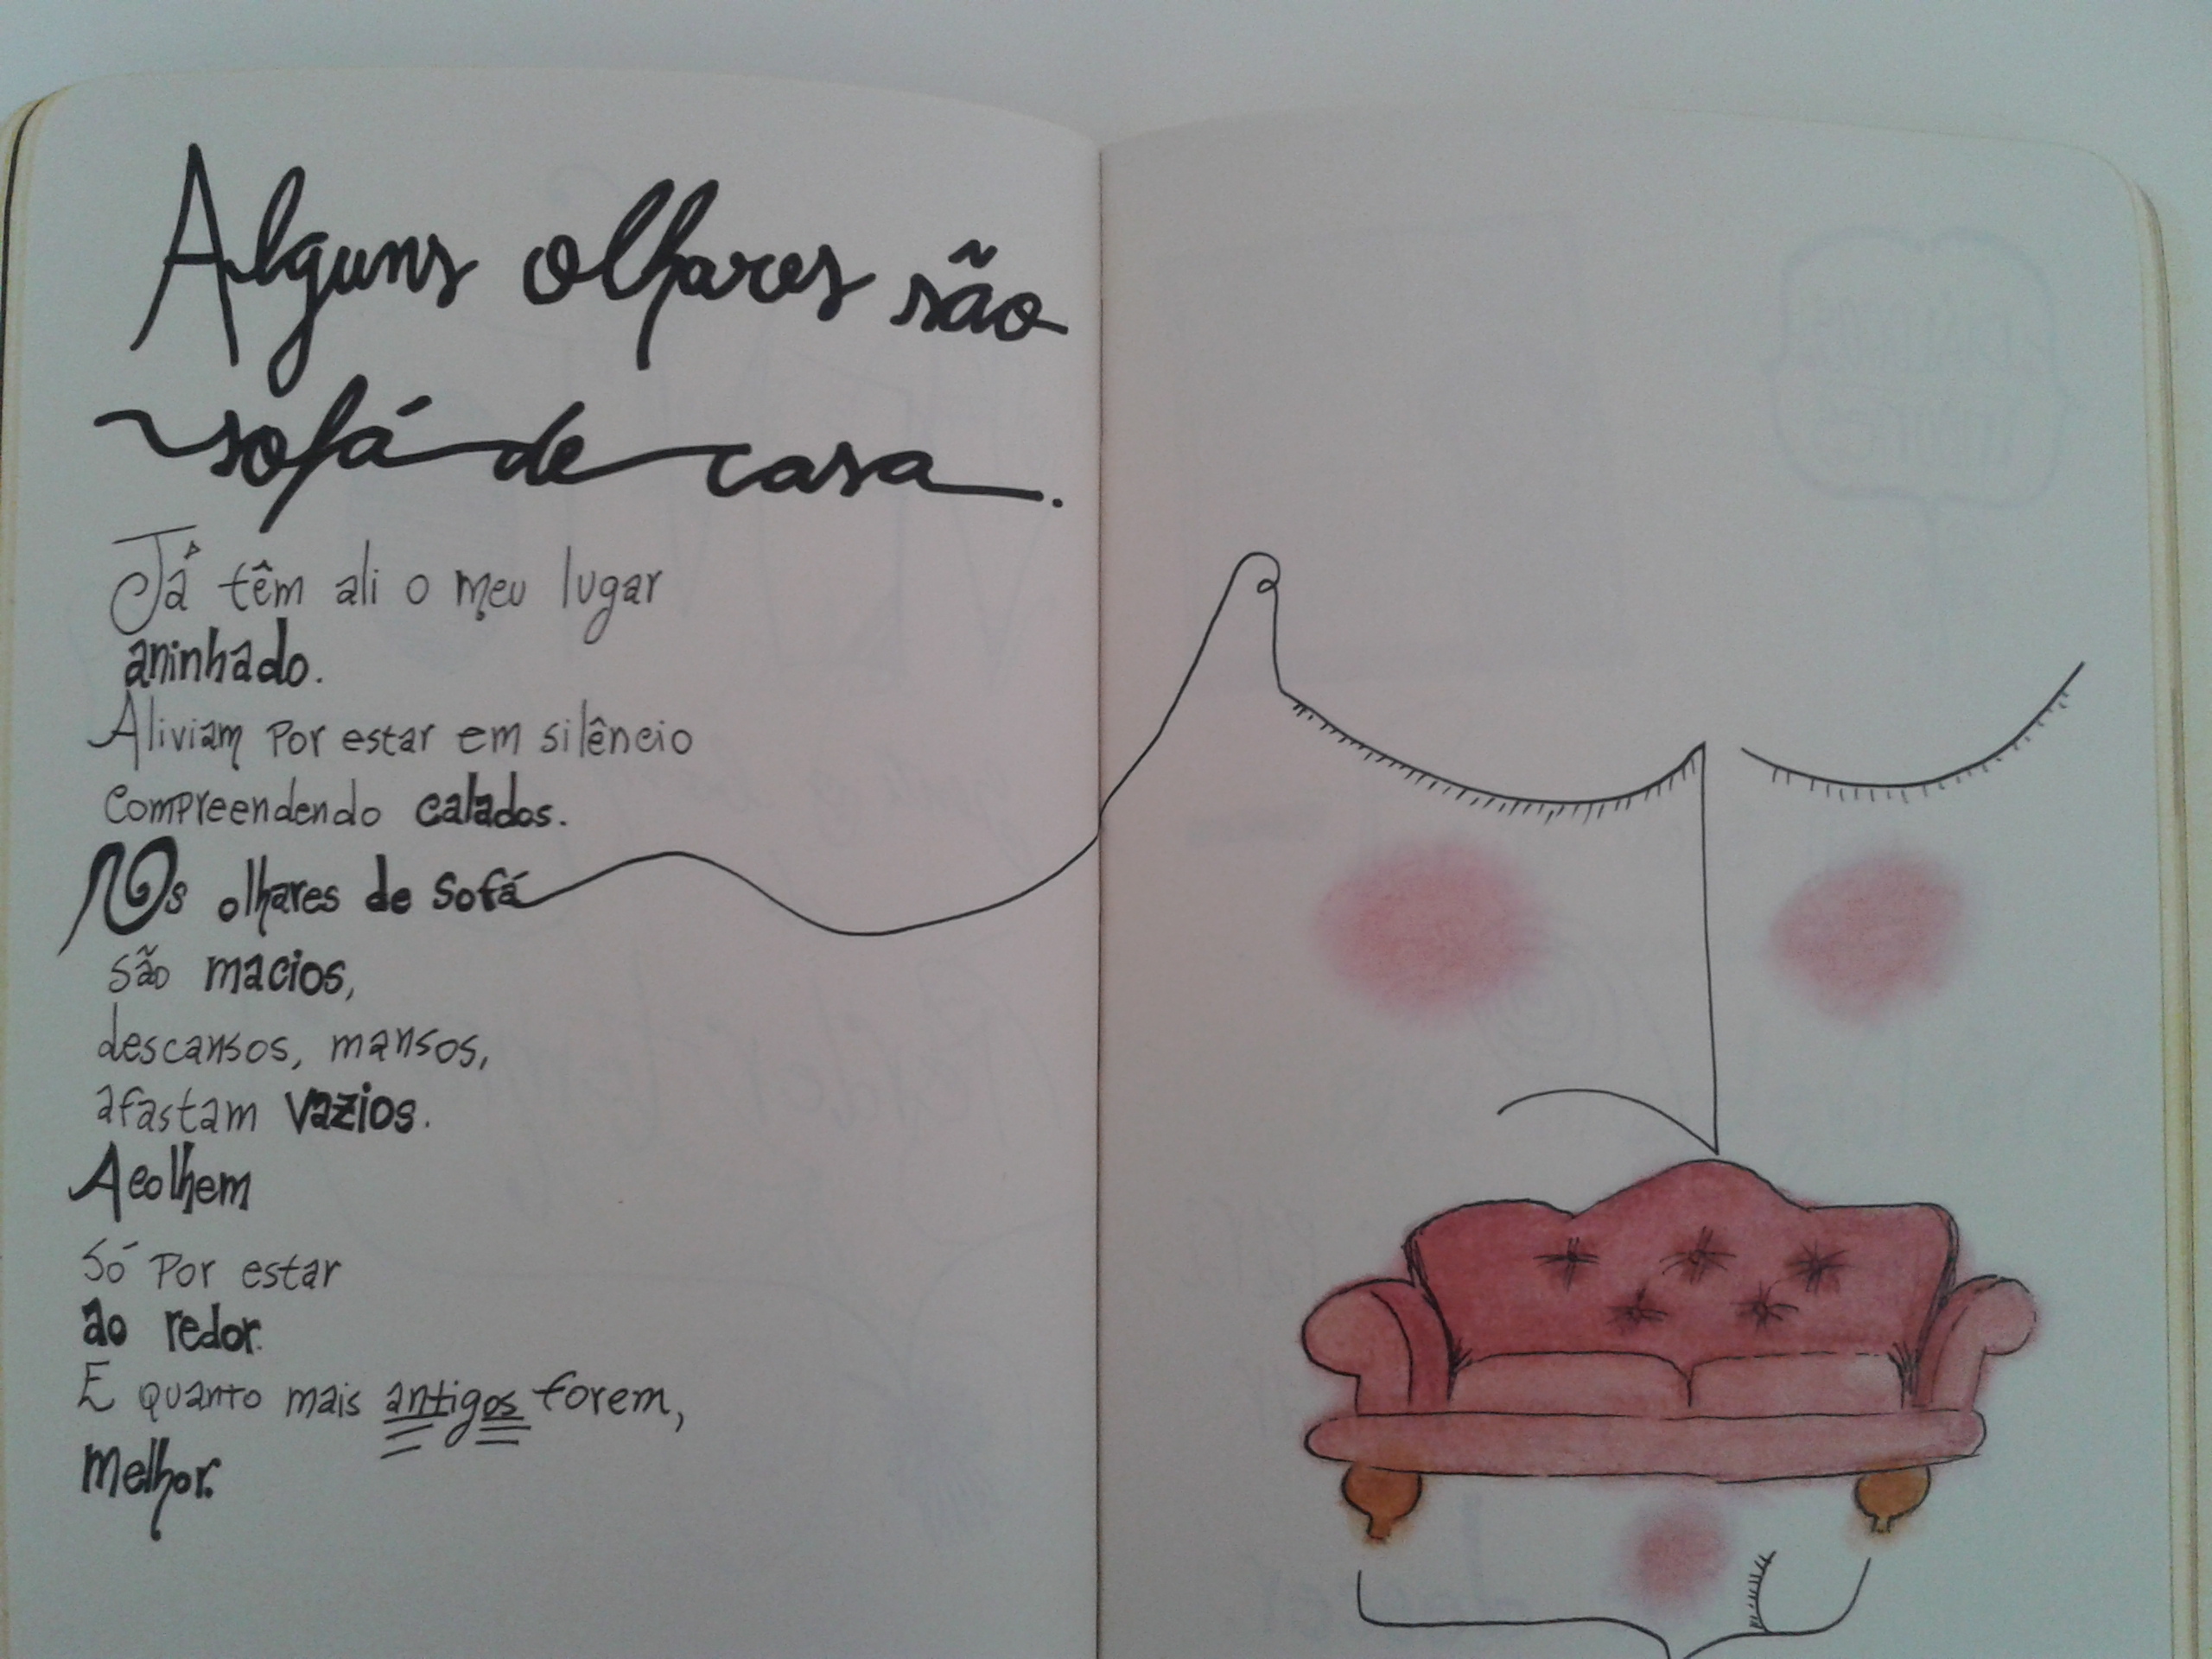 Alguns olhares são
sofá de casa.
Já têm ali o meu lugar
aninhado.
Aliviam por estar em silêncio
compreendendo calados.
Os olhares de sofá
são macios,
descansos, mansos,
afastam vazios.
Acolhem
só por estar
ao redor.
E quanto mais antigos forem,
melhor.